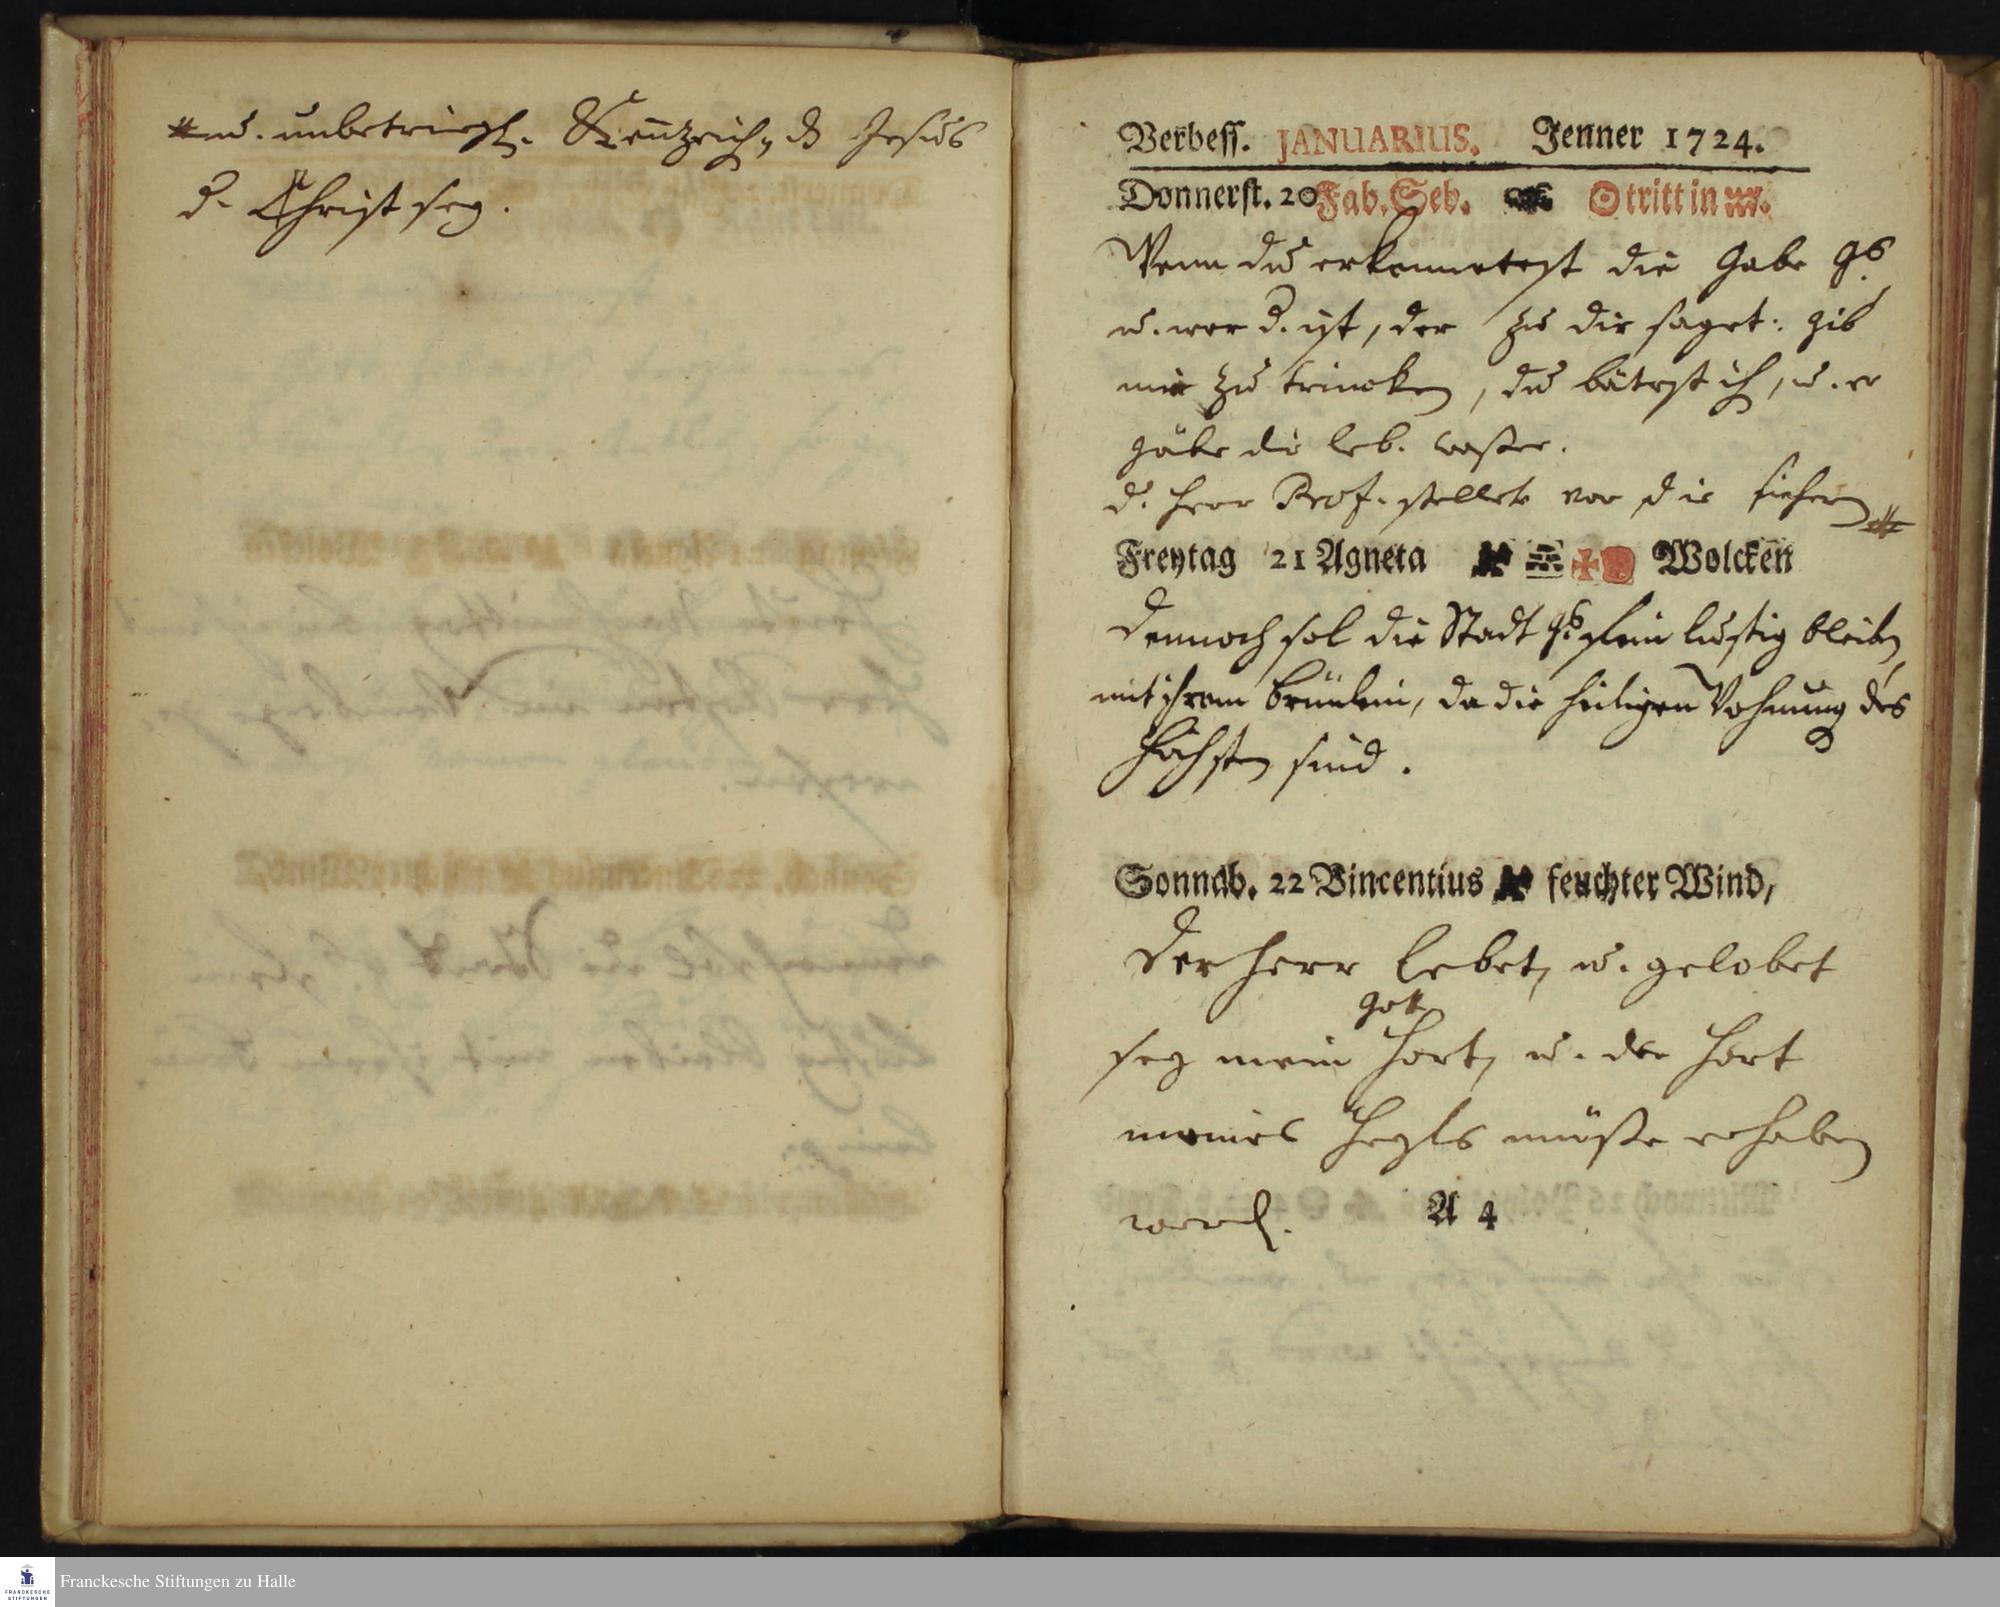 # u. unbetriegl. Kennzeich, dß Jesus
d. Christ sey.
Verbess. JANUARIUS. Jenner 1724.
Donnerst. 20 Fab. Seb. ☉ tritt in ♒.
Wenn du erkennetest die Gabe Gs
u. wer d. ist, der zu dir saget: gib
mir zu trincken, du bätest ih, u. er
gäbe dir leb. waßer.
d. Herr Prof. stellete vor die #
Freytag 21 Agneta Wolcken
Dennoch sol die Stadt Gs fein lustig bleiben
mit ihrem brünlein, da die heiligen Wohnung des
Höchsten sind.
Sonnab. 22 Vincentius feuchter Wind,
Der Herr lebet, u. gelobet
gott
sey mein Hort, u. der Hort
meines Heyls müße erhaben
werd.
A 4
FRANCKESCHE
STIFTUNGEN
Franckesche Stiftungen zu Halle